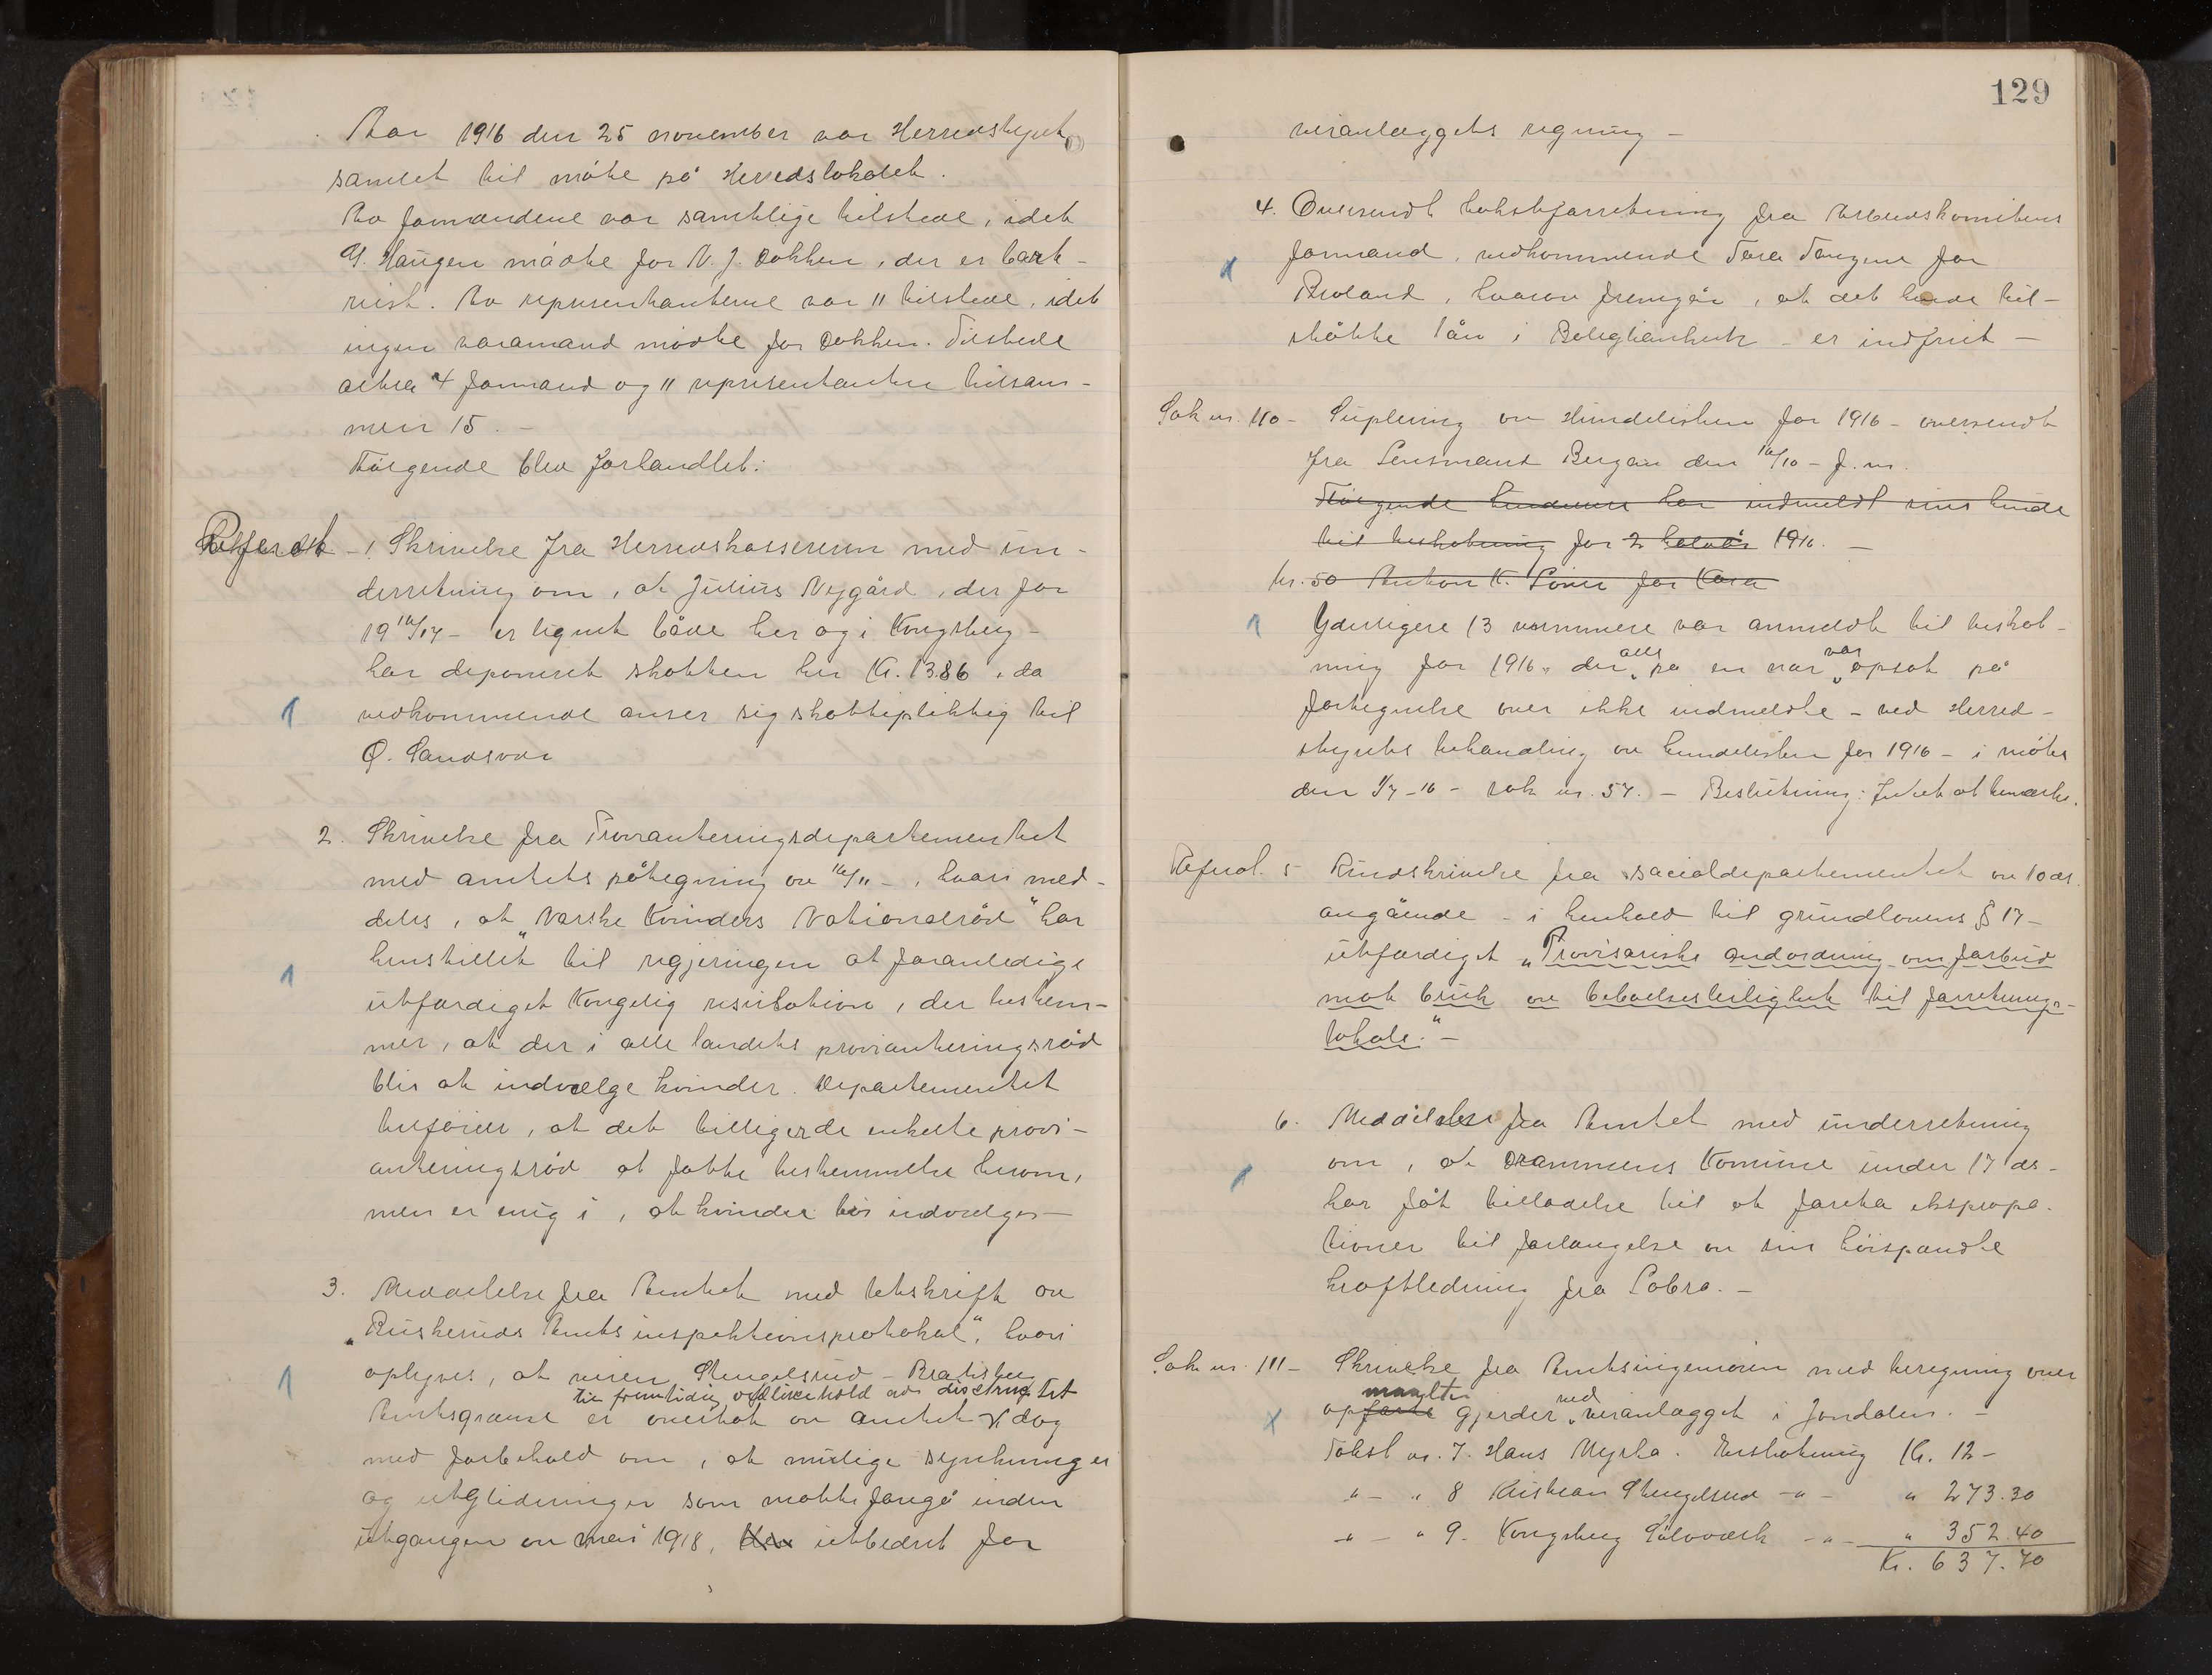 Aar 1916 den 25 november var Herredstyret
samlet til møte på Herredslokalet.
Av formændene var samtlige tilstede, idet
G. Haugen mødte for N. J. Dokken, der er bort-
reist. Av representanterne var 11 tilstede, idet
ingen varamand mødte for Dokken. Tilstede
altsa 4 formænd og 11 representanter tilsam-
men 15. -
Følgende blev forhandlet:
Referat - 1. Skrivelse fra Herredskassereren med un-
derretning om, at Julius Nygård, der for
19 16/17 - er lignet både her og i Kongsberg -
har deponeret skatten her Kr. 13.86, da
1 vedkommende anser sig skattepliktig til
Ø. Sandsvær
2. Skrivelse fra Provianteringsdepartementet
med amtets påtegning av 16/11 - , hvori med-
deles, at "Norske Kvinders Nationalråd" har
1 henstillet til regjeringen at foranledige
utfærdiget Kongelig resulation, der bestem-
mer, at der i alle landets provianteringsråd
blir at indvælge kvinder. Departementet
tilføier, at det tilligger de enkelte provi-
anteringsråd at fatte bestemmelse herom,
men er enig i, at kvinder bør indvælges -
3. Meddelelse fra Amtet med utskrift av
"Buskeruds Amts inspektionsprotokol", hvori
1 oplyses, at veien Stengelsrud -
til fremtidig vedlikehold av distriktet
Amtsgrænse er overtat av amtet dog
med forbehold om, at mulige synkninger
og utglidninger som måtte foregå inden
utgangen av mai 1918, utbedret for
129
veianlæggets regning -
4. Oversendt takstforretning fra Arbeidskomiteens
1 formand, vedkommende Tara Tangene for
, hvorav fremgår, at det herde til-
støtte lån i - er indfriet -
Sak nr. 110 - Suplering av Hundelisten for 1916 - oversendt
fra Lensmand Bergan den 16/10 - f. m.
Følgende hundeeiere har indmeldt sine hunde
til beskatning for 2 halvår 1916. -
Nr. 50 Anton K. for Kara
1 Yderligere 13 nummere var anmeldt til beskat-
ning for 1916, der alle på en nær var opsat på
fortegnelse over ikke indmeldte - ved Herred-
styrets behandling av hundelisten for 1916 - i møte
den 1/7 - 16 - sak nr. 57. - Beslutning: Intet at bemærke.
Referat. 5 Rundskrivelse fra socialdepartementet av 10 ds.
angående - i henhold til grundlovens § 17 -
utfærdiget "Provisoriske andordning om forbud
mot bruk av beboelsesleilighet til forretnings-
lokale." -
6. Meddelelse fra Amtet med underretning
1 om, at Drammens Komune under 17 ds -
har fåt tilladelse til at foreta ekspropa-
tioner til forlængelse av sin høispændte
kraftledning fra Labro. -
Sak nr. 111 - Skrivelse fra Amtsingeniøren med beregning over
maalte
x opførte gjerder ved veianlægget i Jondalen. -
Takst nr. 7. Hans Myrka. Erstatning Kr. 12 -
" - " 8 Kristian Stengelsrud - " - " 273.30
" - " 9 - Kongsberg Sølvværk - " - " 352.40
Kr. 637.70